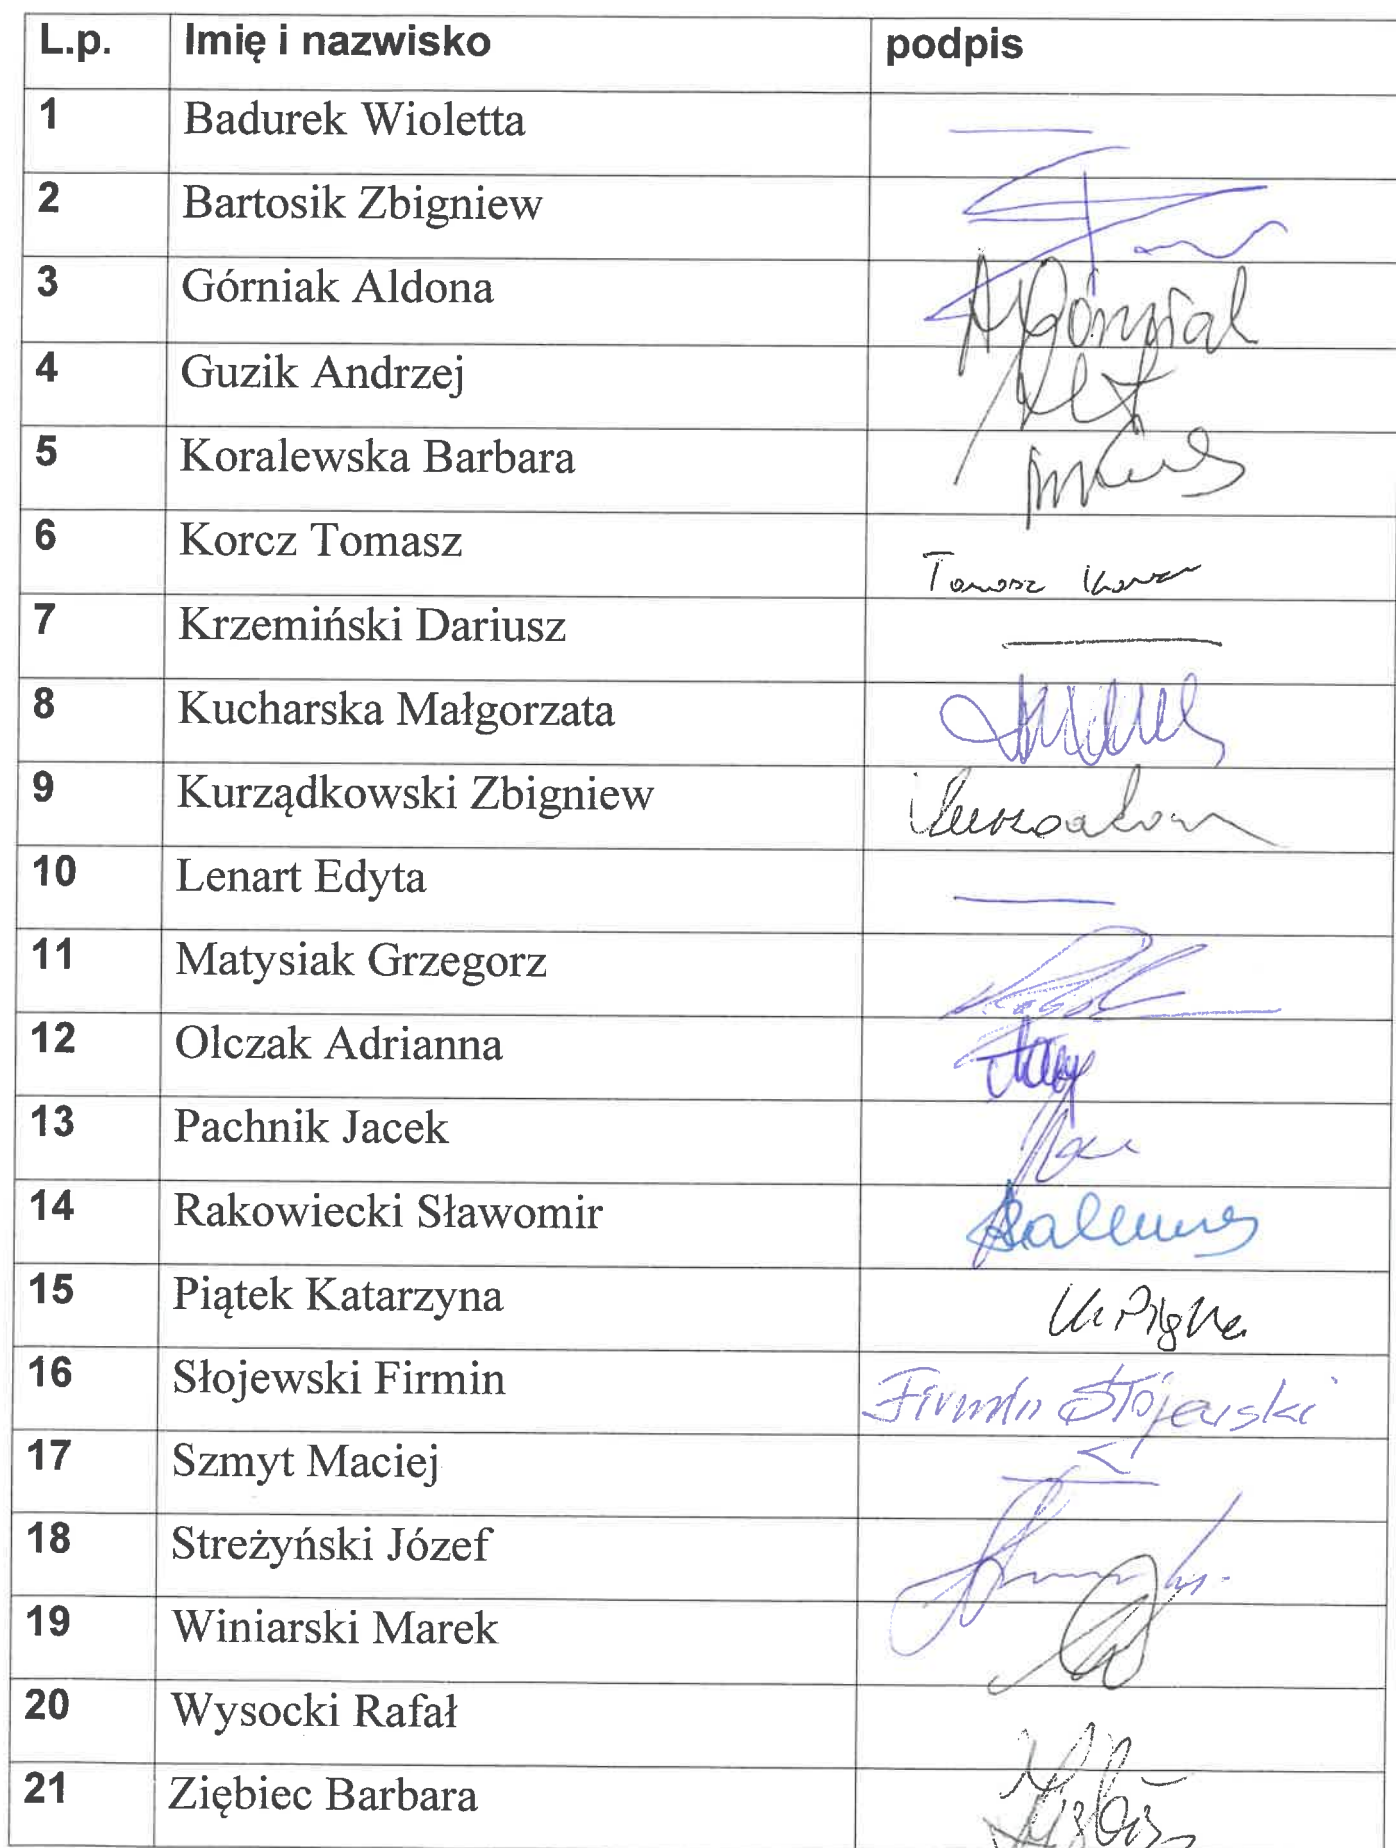 L.p. Imię i nazwisko podpis
1 Badurek Wioletta —
2 Bartosik Zbigniew
3 Górniak Aldona A Górniak
4 Guzik Andrzej
5 Koralewska Barbara
6 Korcz Tomasz Tomasz Korcz
7 Krzemiński Dariusz —
8 Kucharska Małgorzata
9 Kurządkowski Zbigniew
10 Lenart Edyta —
11 Matysiak Grzegorz
12 Olczak Adrianna
13 Pachnik Jacek
14 Rakowiecki Sławomir
15 Piątek Katarzyna
16 Słojewski Firmin Firmin Słojewski
17 Szmyt Maciej —
18 Streżyński Józef
19 Winiarski Marek
20 Wysocki Rafał
21 Ziębiec Barbara